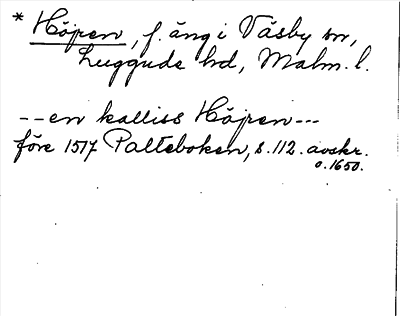 * Höjren, f. äng i Väsby sn,
Luggude hd, Malm. l.
--en kalliss Höjren---
före 1517 Palteboken, s. 112. avskr.
o. 1650.